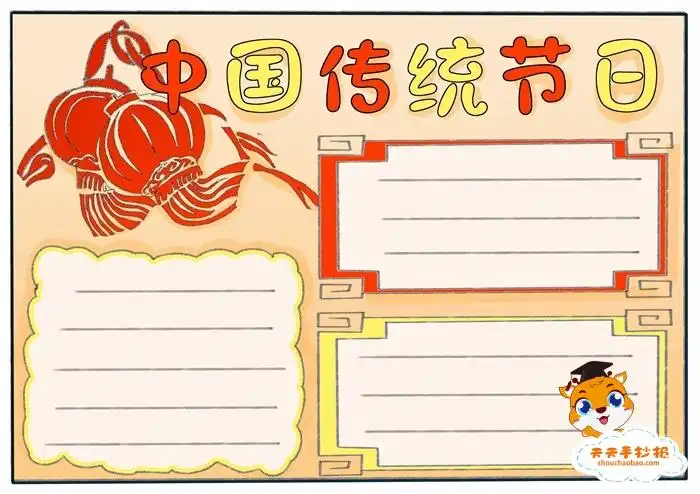 中国传统节日
天天手抄报
shouchaobao.com